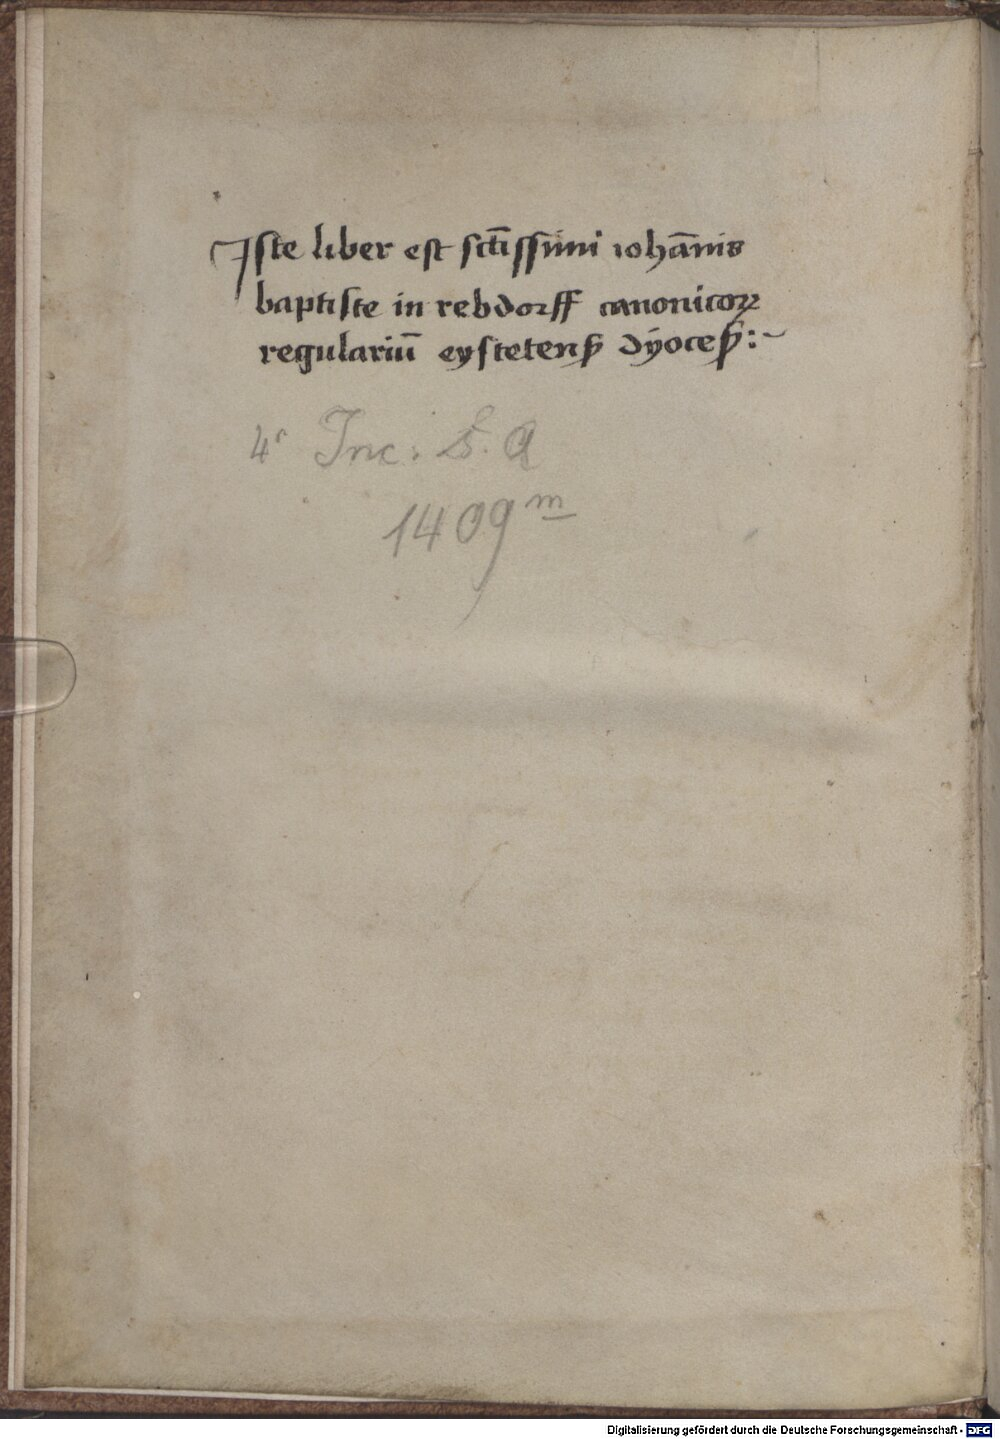 Iste liber est sctīssimi iohānis
baptiste in rebdorff canonicoꝝ
regulariū eystetenꝭ dyoceꝭ :~
4° Inc. s. a.
1409 m
Digitalisierung gefördert durch die Deutsche Forschungsgemeinschaft - DFG